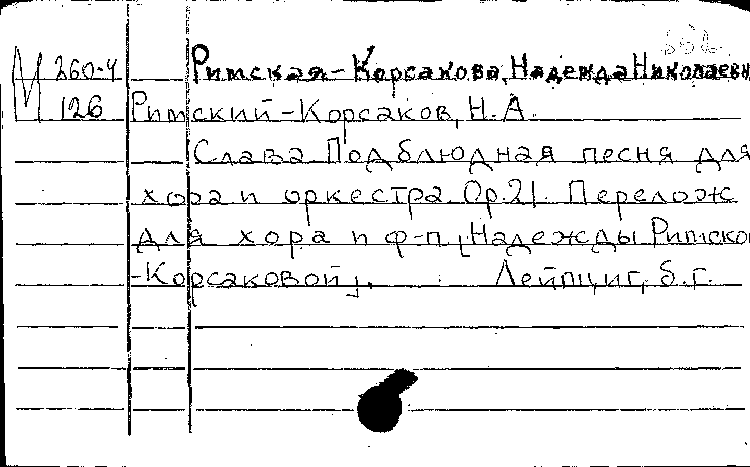 М 260-4 Римская-Корсакова, Надежда Николаевн
126 Римский-Корсаков, Н.А.
Слава Подблюдная песня для
хора и оркестра. Ор.21. Перелож
для хора и ф-п [Надежды Римско
-Корсаковой]. Лейпциг, б.г.